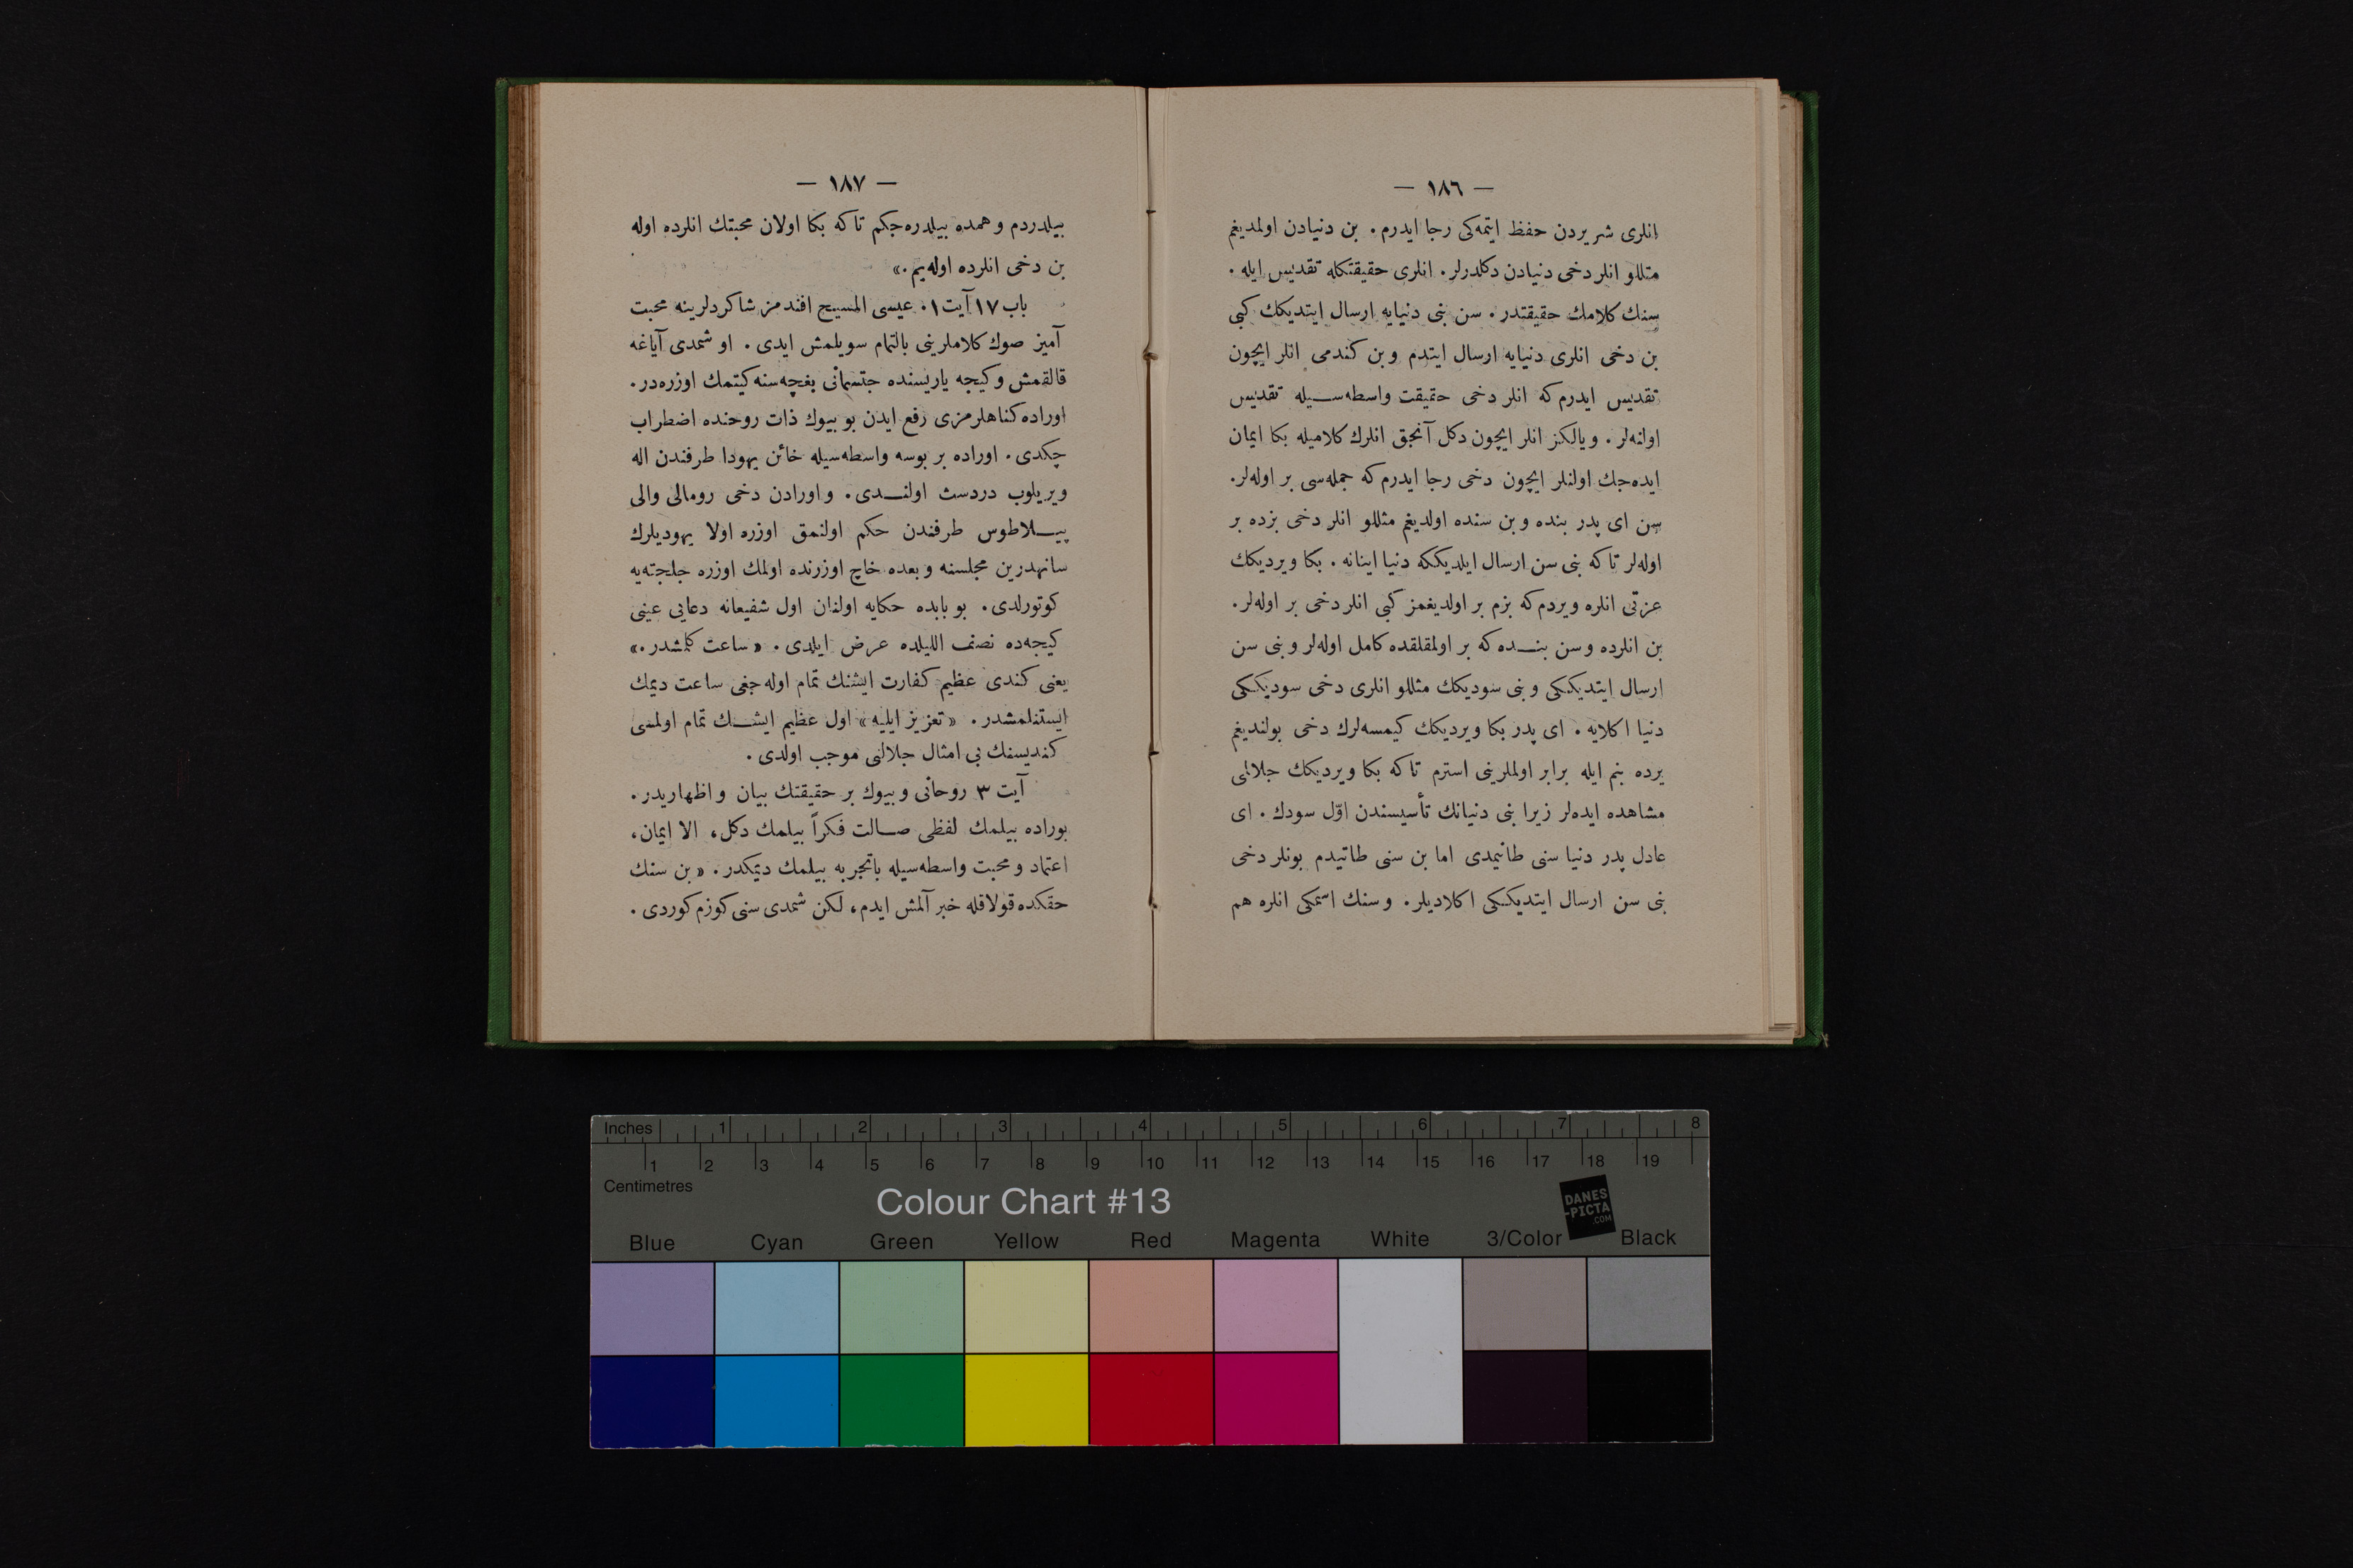 — ١٨٦ —
انلری شریردن حفظ ایتمه‌کی رجا ایدرم. بن دنیادن اولمدیغم
مثللو انلر دخی دنیادن دکلدرلر. انلری حقیقتکله تقدیس ایله.
سنك کلامك حقیقتدر. سن بنی دنیایه ارسال ایتدیکك کبی
بن دخی انلری دنیایه ارسال ایتدم وبن کندمی انلر ایچون
تقدیس ایدرم که انلر دخی حقیقت واسطه‌سیله تقدیس
اولنه‌لر. ویالکز انلر ایچون دکل آنجق انلرك کلامیله بکا ایمان
ایده‌جك اولنلر ایچون دخی رجا ایدرم که جمله‌سی بر اوله‌لر.
سن ای پدر بنده وبن سنده اولدیغم مثللو انلر دخی بزده بر
اوله‌لر تاکه بنی سن ارسال ایلدیککه دنیا اینانه. بکا ویردیکك
عزتی انلره ویردم که بزم بر اولدیغمز کبی انلر دخی بر اوله‌لر.
بن انلرده وسن بنده که بر اولمقلقده کامل اوله‌لر وبنی سن
ارسال ایتدیککی وبنی سودیکك مثللو انلری دخی سودیککی
دنیا اکلایه. ای پدر بکا ویردیکك کیمسه‌لرك دخی بولندیغم
یرده بنم ایله برابر اولملرینی استرم تاکه بکا ویردیکك جلالمی
مشاهده ایده‌لر زیرا بنی دنیانك تأسیسندن اوّل سودك. ای
عادل پدر دنیا سنی طانیمدی اما بن سنی طانیدم بونلر دخی
بنی سن ارسال ایتدیککی اکلادیلر. وسنك اسمکی انلره هم
— ١٨٧ —
بیلدردم وهمده بیلدره‌جکم تاکه بکا اولان محبتك انلرده اوله
بن دخی انلرده اوله‌یم.»
باب ١٧ آیت ١. عیسی المسیح افندمز شاکردلرینه محبت
آمیز صوك کلاملرینی بالتمام سویلمش ایدی. او شمدی آیاغه
قالقمش وکیجه یاریسنده جتسمانی بغچه‌سنه کیتمك اوزره‌در.
اوراده کناهلرمزی رفع ایدن بو بیوك ذات روحنده اضطراب
چکدی. اوراده بر بوسه واسطه‌سیله خائن یهودا طرفندن اله
ویریلوب دردست اولندی. واورادن دخی رومالی والی
پیلاطوس طرفندن حکم اولنمق اوزره اولا یهودیلرك
سانهدرین مجلسنه وبعده خاچ اوزرنده اولمك اوزره جلجته‌یه
کوتورلدی. بو بابده حکایه اولنان اول شفیعانه دعایی عینی
کیجه‌ده نصف اللیلده عرض ایلدی. «ساعت کلمشدر.»
یعنی کندی عظیم کفارت ایشنك تمام اوله‌جغی ساعت دیمك
ایستنلمشدر. «تعزیز ایلیه» اول عظیم ایشك تمام اولمسی
کندیسنك بی امثال جلالنی موجب اولدی.
آیت ٣ روحانی وبیوك بر حقیقتك بیان واظهاریدر.
بوراده بیلمك لفظی صالت فکراً بیلمك دکل، الا ایمان،
اعتماد ومحبت واسطه‌سیله باتجربه بیلمك دیمکدر. «بن سنك
حقکده قولاقله خبر آلمش ایدم، لکن شمدی سنی کوزم کوردی.
Inches 1 2 3 4 5 6 7 8
1 2 3 4 5 6 7 8 9 10 11 12 13 14 15 16 17 18 19
Centimetres
Colour Chart #13
DANES
-PICTA
.COM
Blue Cyan Green Yellow Red Magenta White 3/Color Black